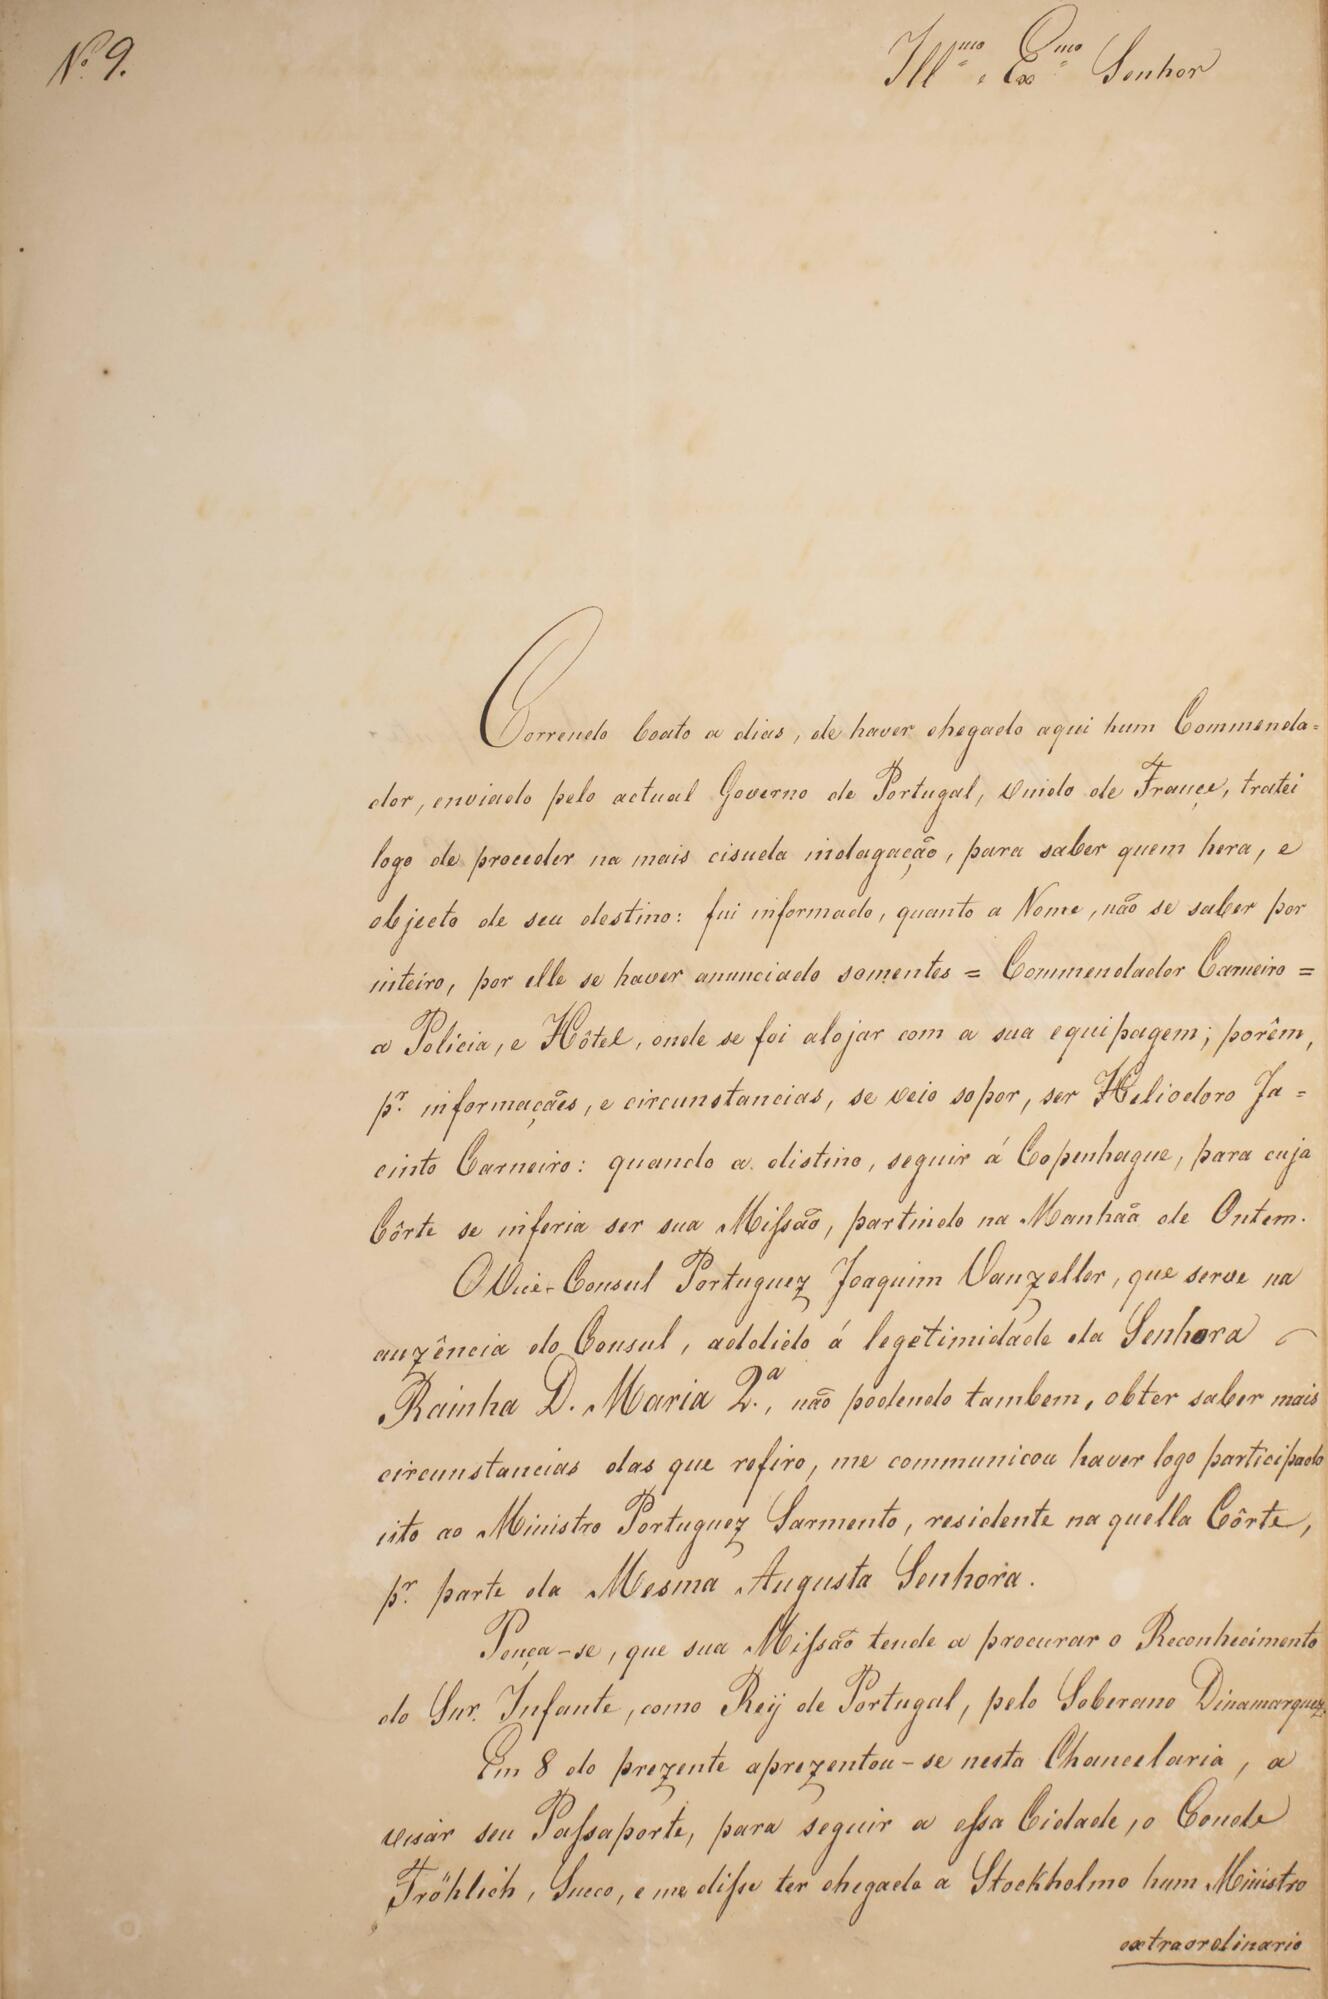 Nº 9.
Illmo e Exmo Senhor
Correndo boato a dias, de haver chegado aqui hum Commenda=
dor, enviado pelo actual Governo de Portugal, vindo de França, tratei
logo de proceder na mais cisuda indagação, para saber quem hera, e
objecto de seu destino: fui informado, quanto a Nome, não se saber por
inteiro, por elle se haver anunciado somentes = Commendador Carneiro =
a Policia, e Hôtel, onde se foi alojar com a sua equipagem; porêm,
pr. informações, e circunstancias, se veio sopor, ser Heliodoro Ja=
cinto Carneiro: quando a distino, seguir á Copenhague, para cuja
Côrte se inferia ser sua Missão, partindo na Manhaã de Ontem.
O Vice-Consul Portuguez Joaquim Vanzeller, que serve na
auzência do Consul, addido á legetimidade da Senhora
Rainha D. Maria 2.ª, não podendo tambem, obter saber mais
circunstancias das que refiro, me communicou haver logo participado
isto ao Ministro Portuguez Sarmento, residente naquella Côrte,
pr. parte da Mesma Augusta Senhora.
Pença-se, que sua Missão tende a procurar o Reconhecimento
do Snr. Infante, como Reÿ de Portugal, pelo Soberano Dinamarquez.
Em 8 do prezente aprezentou-se nesta Chancelaria, a
visár seu Passaporte, para seguir a essa Cidade, o Conde
Fröhlich, Sueco, e me disse ter chegado a Stockholmo hum Ministro
extraordinario